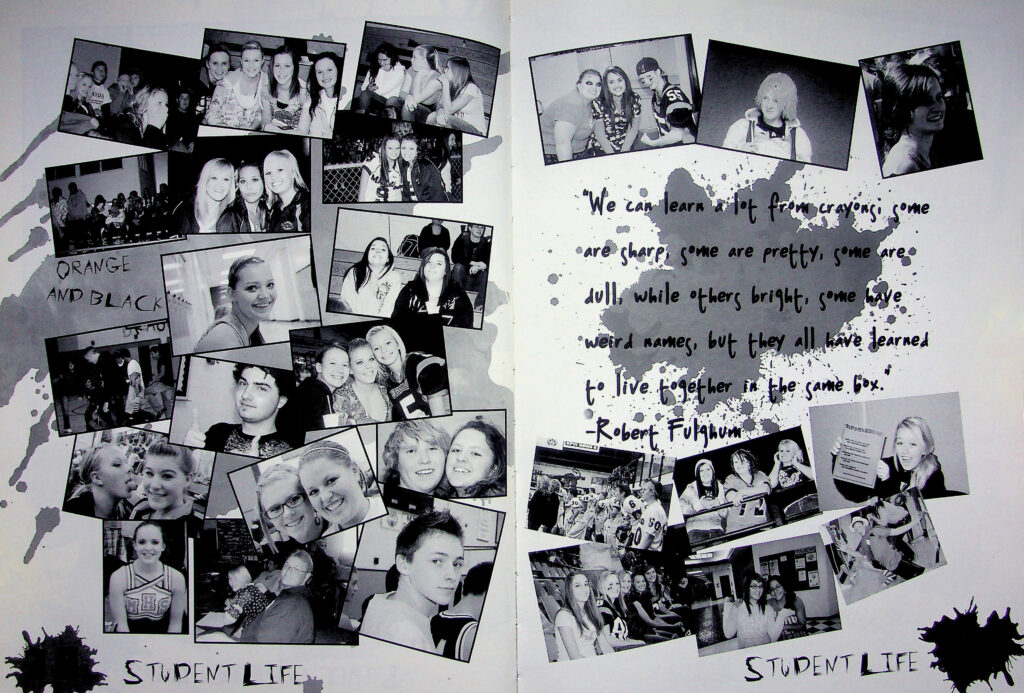 ORANGE
AND BLACK
STUDENT LIFE
"We can learn a lot from crayons; some
are sharp, some are pretty, some are
dull, while others bright, some have
weird names, but they all have learned
to live together in the same box."
-Robert Fulghum
STUDENT LIFE
MHS
55
72
50